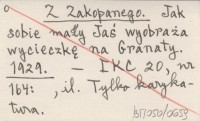 Z Zakopanego. Jak
sobie mały Jaś wyobraża
wycieczkę na Granaty.
1929. IKC 20, nr
164: , il. Tylko karyka-
tura.